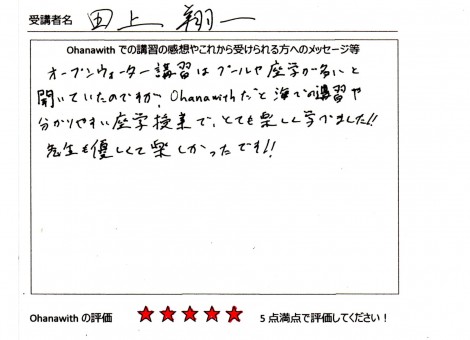 受講者名 田上 翔一
Ohanawith での講習の感想やこれから受けられる方へのメッセージ等
オープンウォーター講習はプールや座学が多いと
聞いていたのですが、Ohanawithだと海での講習や
分かりやすい座学授業で、とても楽しく学びました!!
先生も優しくて楽しかったです!!
Ohanawith の評価 ★★★★★ 5 点満点で評価してください！